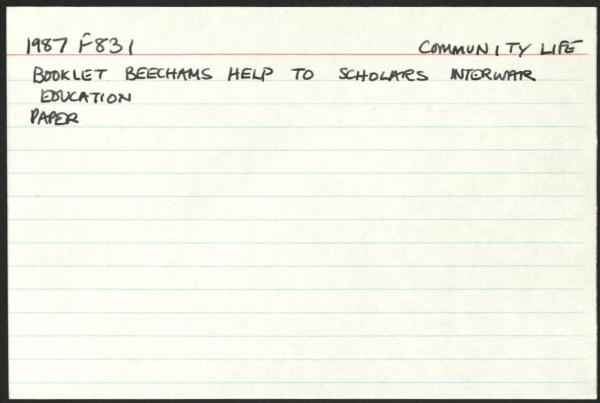 1987 F831 COMMUNITY LIFE
BOOKLET BEECHAMS HELP TO SCHOLARS INTERWAR
EDUCATION
PAPER